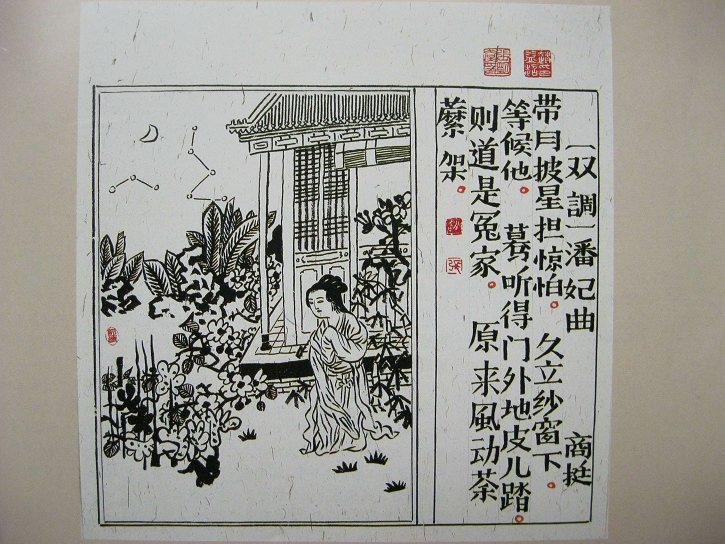 〔双調〕潘妃曲 商挺
带月披星担惊怕。久立纱窗下。
等候他。蓦听得门外地皮儿踏。
则道是冤家。原来風动荼
蘼架。